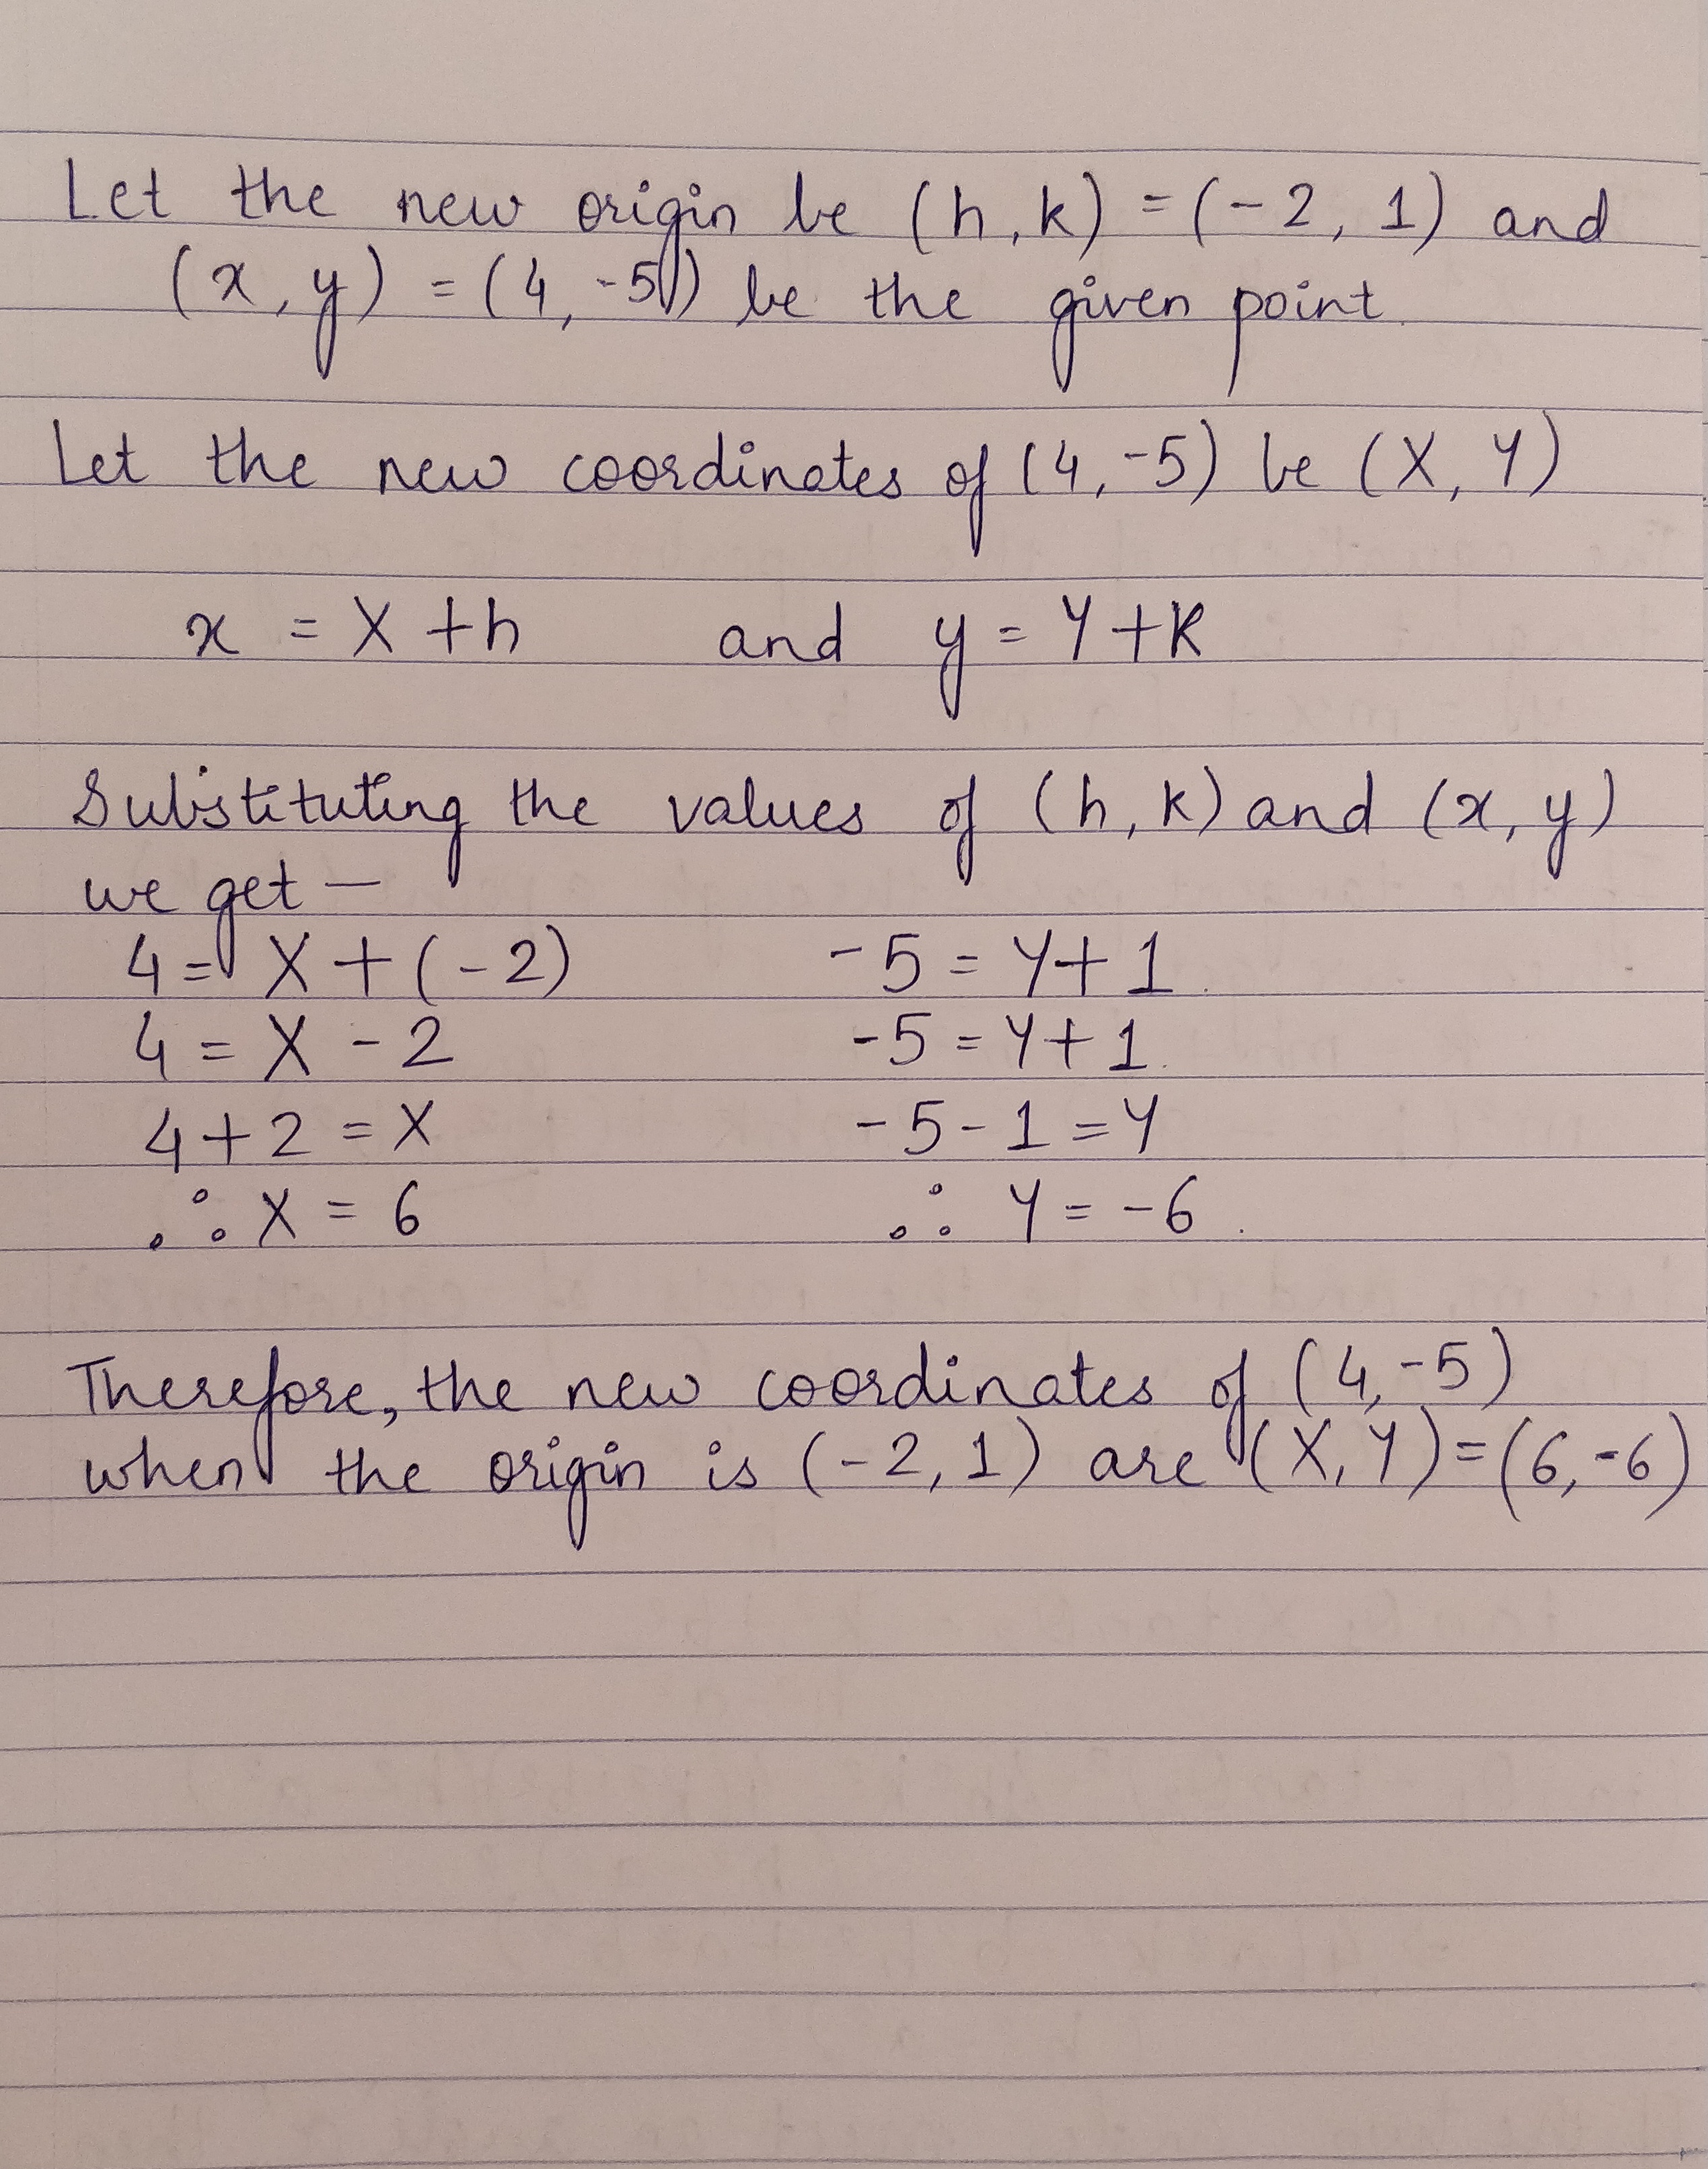 Let the new origin be (h, k) = (-2, 1) and
(x, y) = (4, -5) be the given point.
Let the new coordinates of (4, -5) be (X, Y)
x = X + h and y = Y + k
Substituting the values of (h, k) and (x, y)
we get —
4 = X + (-2) -5 = Y + 1.
4 = X - 2 -5 = Y + 1.
4 + 2 = X -5 - 1 = Y
∴ X = 6 ∴ Y = -6.
Therefore, the new coordinates of (4, -5)
when the origin is (-2, 1) are (X, Y) = (6, -6)